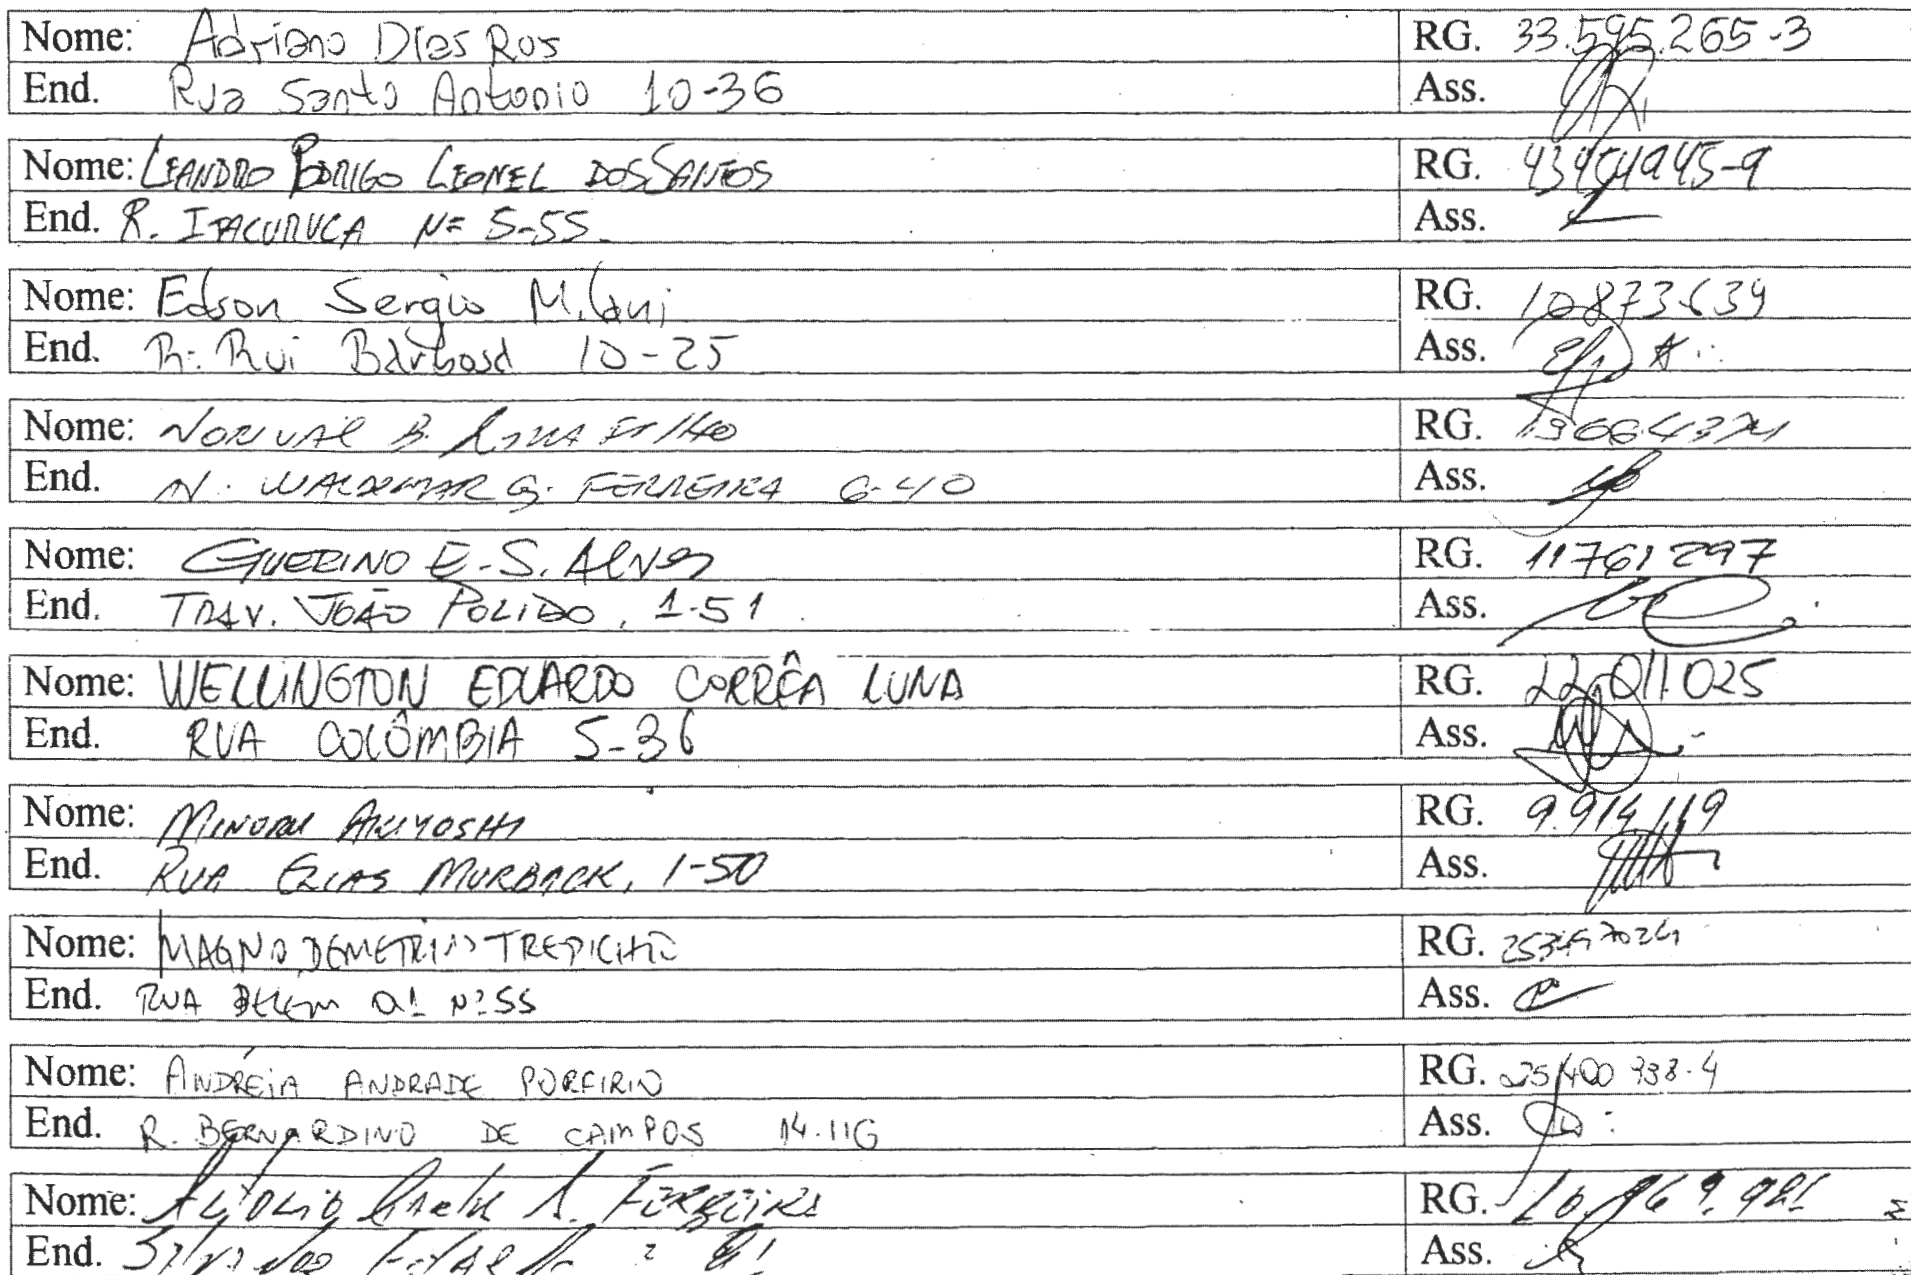 Nome: Adriano Dias Ros RG. 33.595.265-3
End. Rua Santo Antonio 10-36 Ass.
Nome: LEANDRO RODRIGO LEONEL DOS SANTOS RG. 43454945-9
End. R. ITACURUCA Nº 5-55 Ass.
Nome: Edson Sergio Milani RG. 10873639
End. R. Rui Barbosa 10-25 Ass.
Nome: NORIVAL B. LIMA FILHO RG.
End. WALDEMAR G. FERREIRA 6-40 Ass.
Nome: GUERINO E. S. Alves RG. 11761297
End. TRAV. JOÃO POLIDO, 1-51 Ass.
Nome: WELLINGTON EDUARDO CORRÊA LUNA RG. 22.011.025
End. RUA COLÔMBIA 5-36 Ass.
Nome: MINORU AKIYOSHI RG. 9.914.119
End. RUA ELIAS MURBACK, 1-50 Ass.
Nome: MAGNO DEMETRIO TREPICHIO RG.
End. RUA BELÉM Nº 55 Ass.
Nome: ANDRÉIA ANDRADE PORFIRIO RG.
End. R. BERNARDINO DE CAMPOS 14.116 Ass.
Nome: FERREIRA RG.
End. Ass.